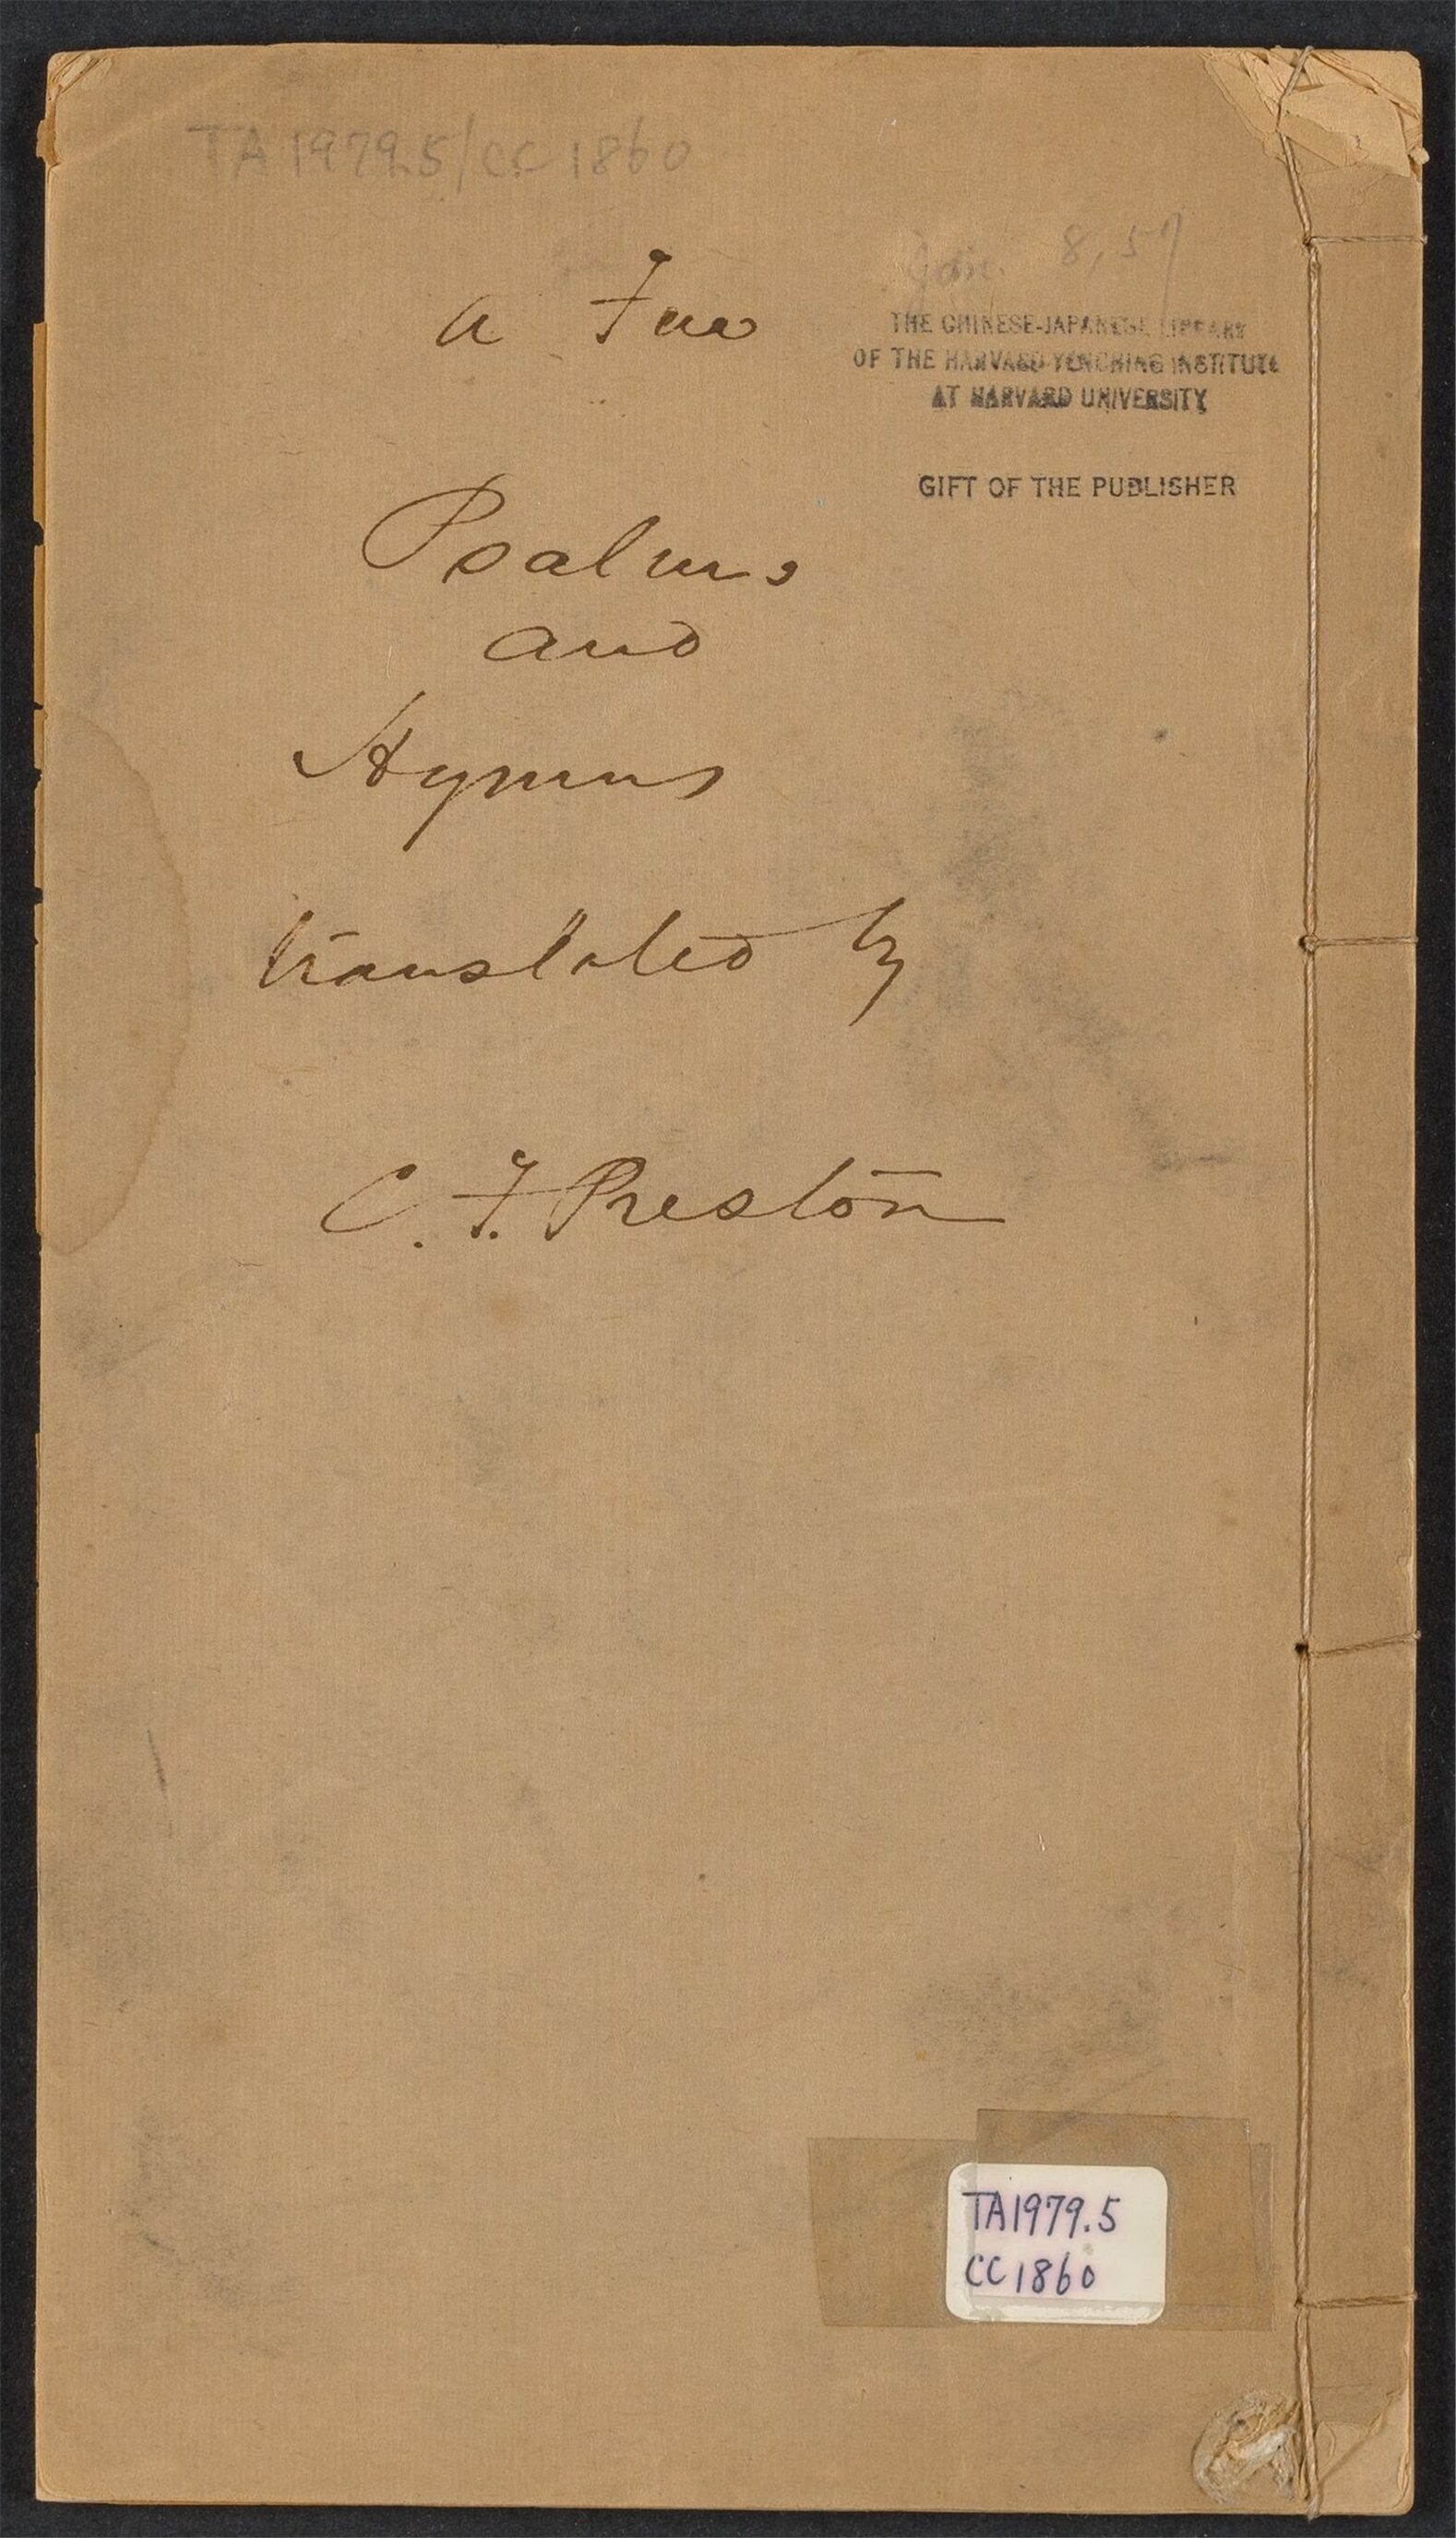 TA 1979.5/CC 1860
Jan. 8, 57
THE CHINESE-JAPANESE LIBRARY
OF THE HARVARD-YENCHING INSTITUTE
AT HARVARD UNIVERSITY
GIFT OF THE PUBLISHER
A Few
Psalms
and
Hymns
translated by
C. F. Preston
TA1979.5
CC1860